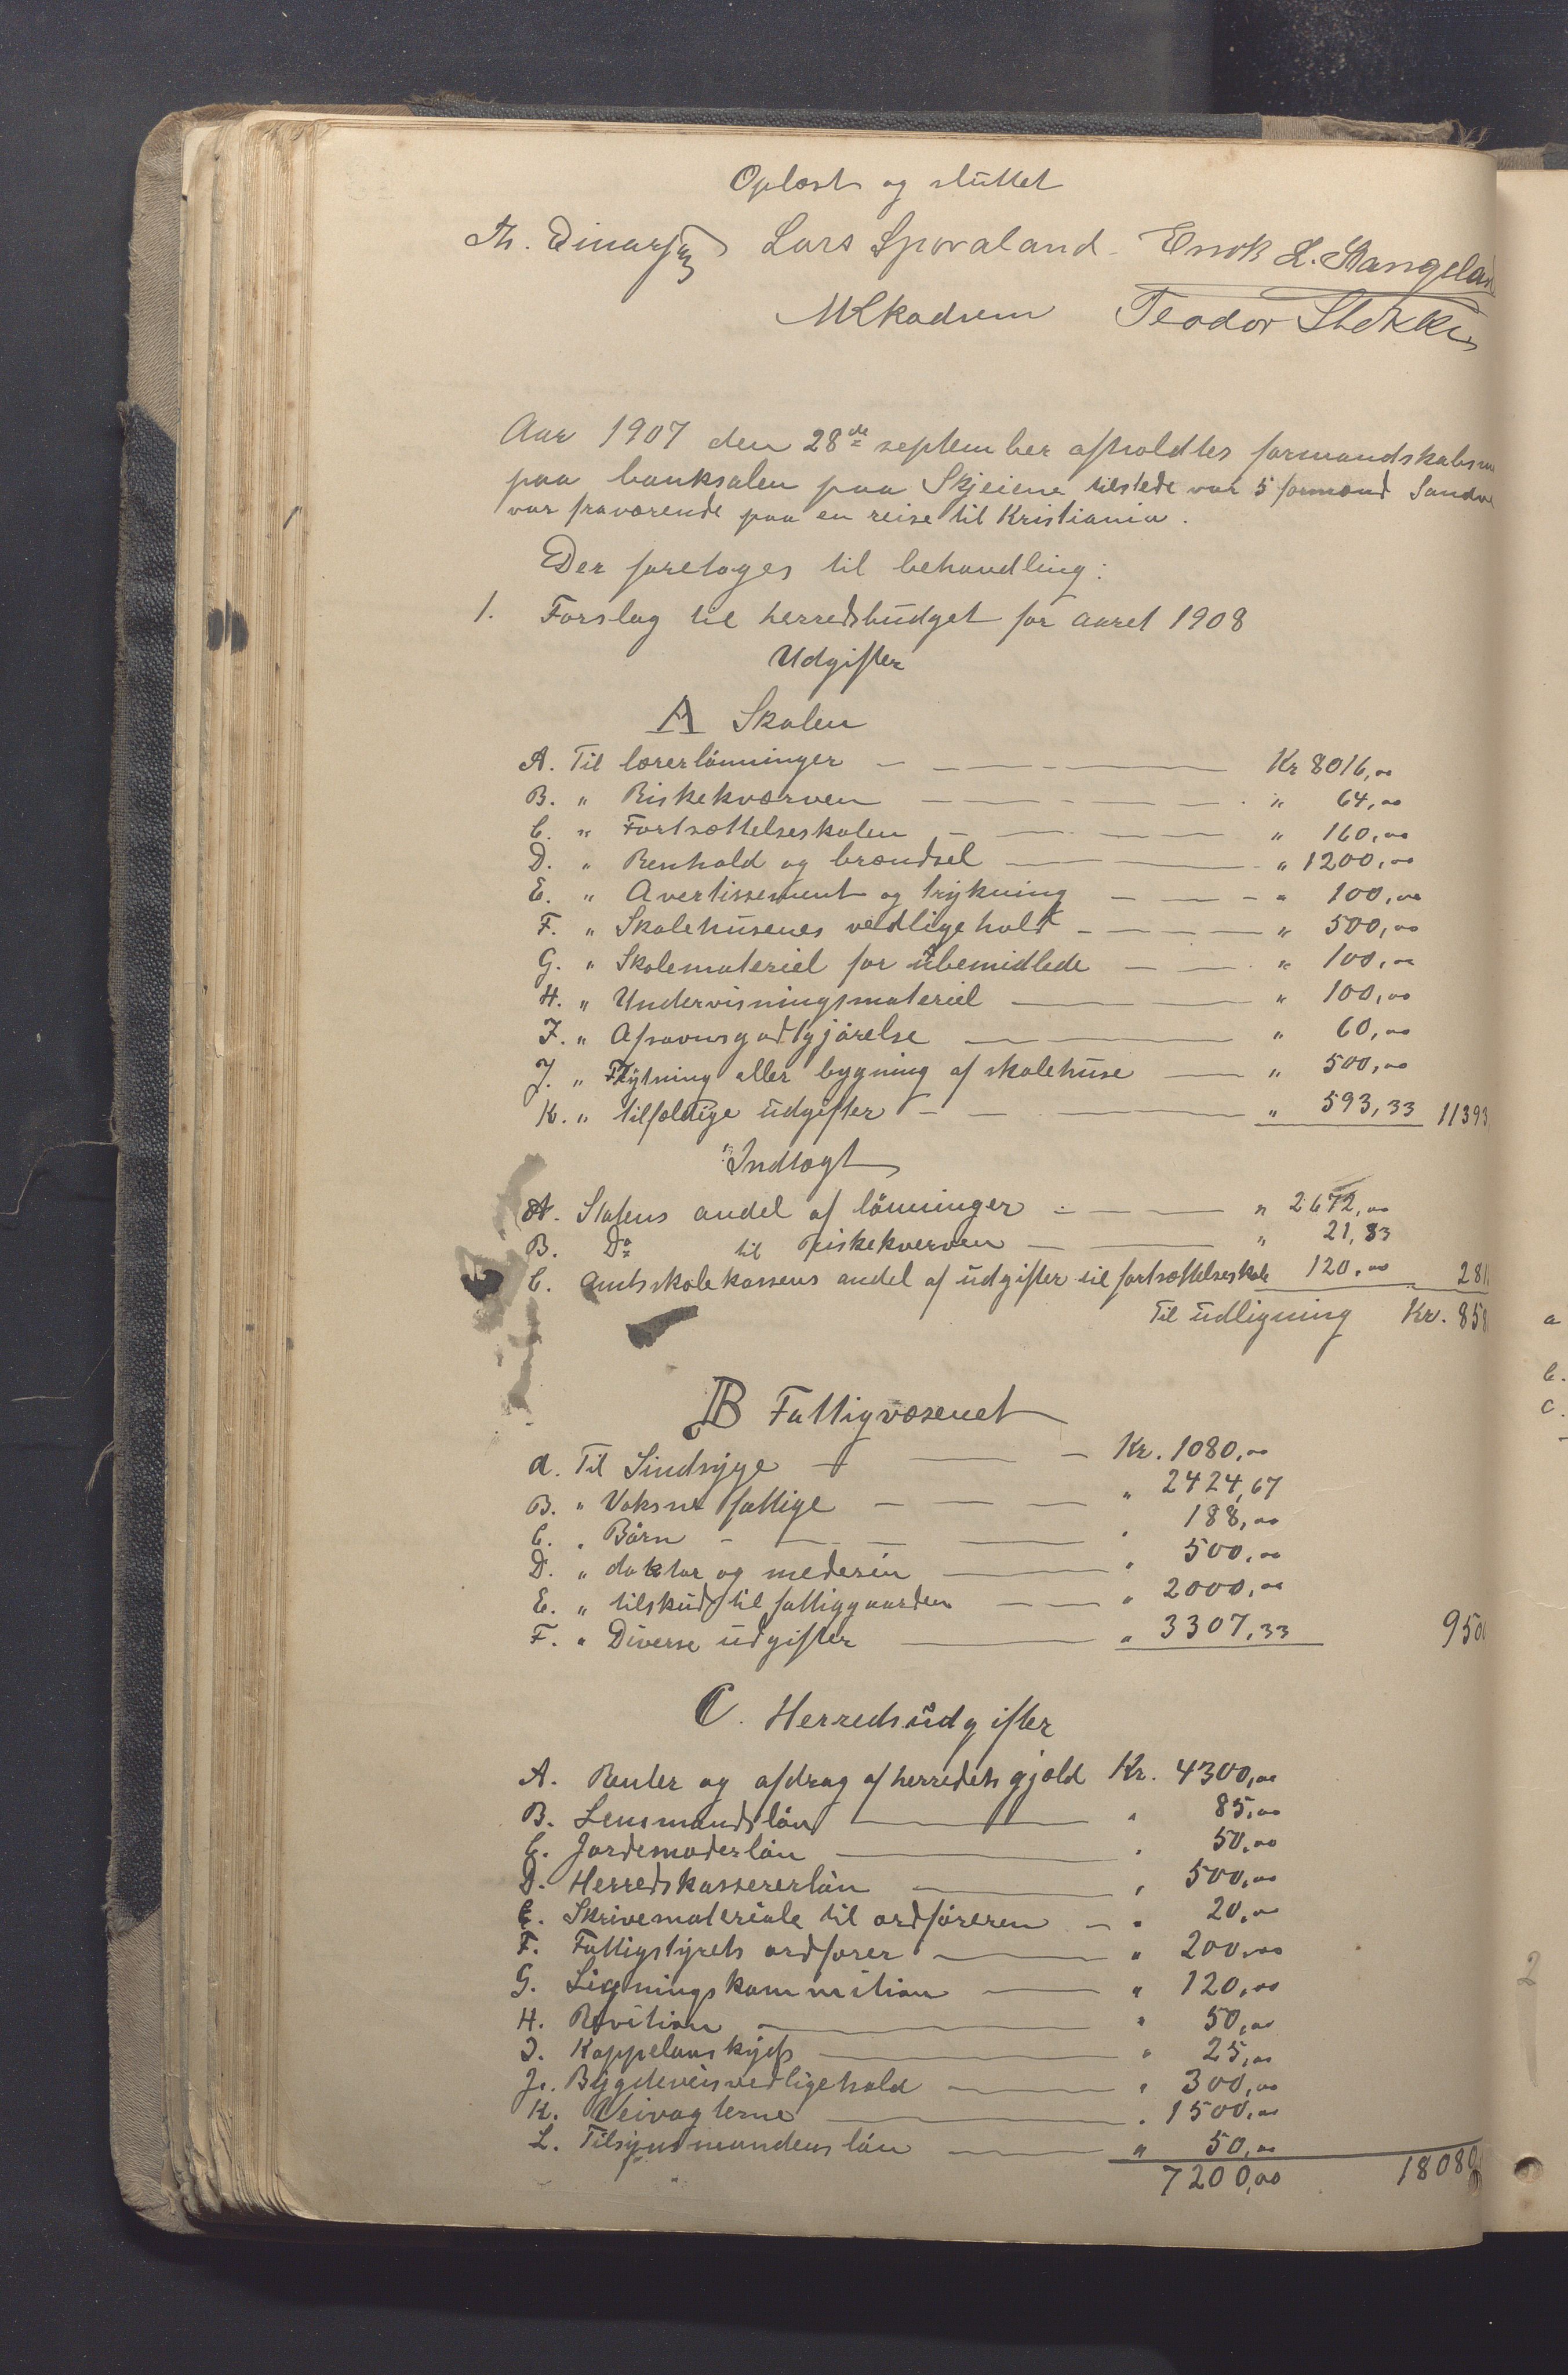 Oplæst og sluttet
Th. Einarsen Lars Sporaland. Enok L. Stangeland
M Skadsem Teodor Stokke
Aar 1907 den 28de september afholdtes formandskabsm
paa banksalen paa Skjeiene tilstede var 5 formænd Sandv
var fraværende paa en reise til Kristiania.
Der foretoges til behandling:
1. Forslag til herredsbudget for aaret 1908
Udgifter
A Skolen
A. Til lærerlönninger — Kr 8016,00
B. " Riskekværven — " 64,00
C. " Fortsættelseskolen — " 160,00
D. " Renhold og brændsel — " 1200,00
E. " Avertissement og trykning — " 100,00
F. " Skolehusenes vedligehold — " 500,00
G. " Skolemateriel for ubemidlede — " 100,00
H. " Undervisningsmateriel — " 100,00
I. " Afsavnsgodtgjörelse — " 60,00
J. " Flytning eller bygning af skolehuse — " 500,00
K. " tilfældige udgifter — " 593,33 11393
Indtægt
A. Statens andel af lönninger — " 2672,00
B. Do til Riskekverven — " 21,83
C. Amtsskolekassens andel af udgifter til fortsættelseskole 120,00 281
Til udligning Kr. 858
B Fattigvæsenet
A. Til Sindsyge — Kr. 1080,00
B. " Voksne fattige — " 2424,67
C. " Börn — " 188,00
D. " doktor og medesin — " 500,00
E. " tilskud til fattiggaarden — " 2000,00
F. " Diverse udgifter — " 3307,33 950
C. Herredsudgifter
A. Renter og afdrag af herredets gjæld Kr. 4300,00
B. Lensmandslön — " 85,00
C. Jordemoderlön — " 50,00
D. Herredskassererlön — " 500,00
E. Skrivemateriale til ordföreren — " 20,00
F. Fattigstyrets ordförer — " 200,00
G. Ligningskommition — " 120,00
H. Revition — " 50,00
I. Kappelanskyds — " 25,00
J. Bygdeveisvedligehold — " 300,00
K. Veivogterne — " 1500,00
L. Tilsynsmandens lön — " 50,00
7200,00 18080
a
b.
c.
2